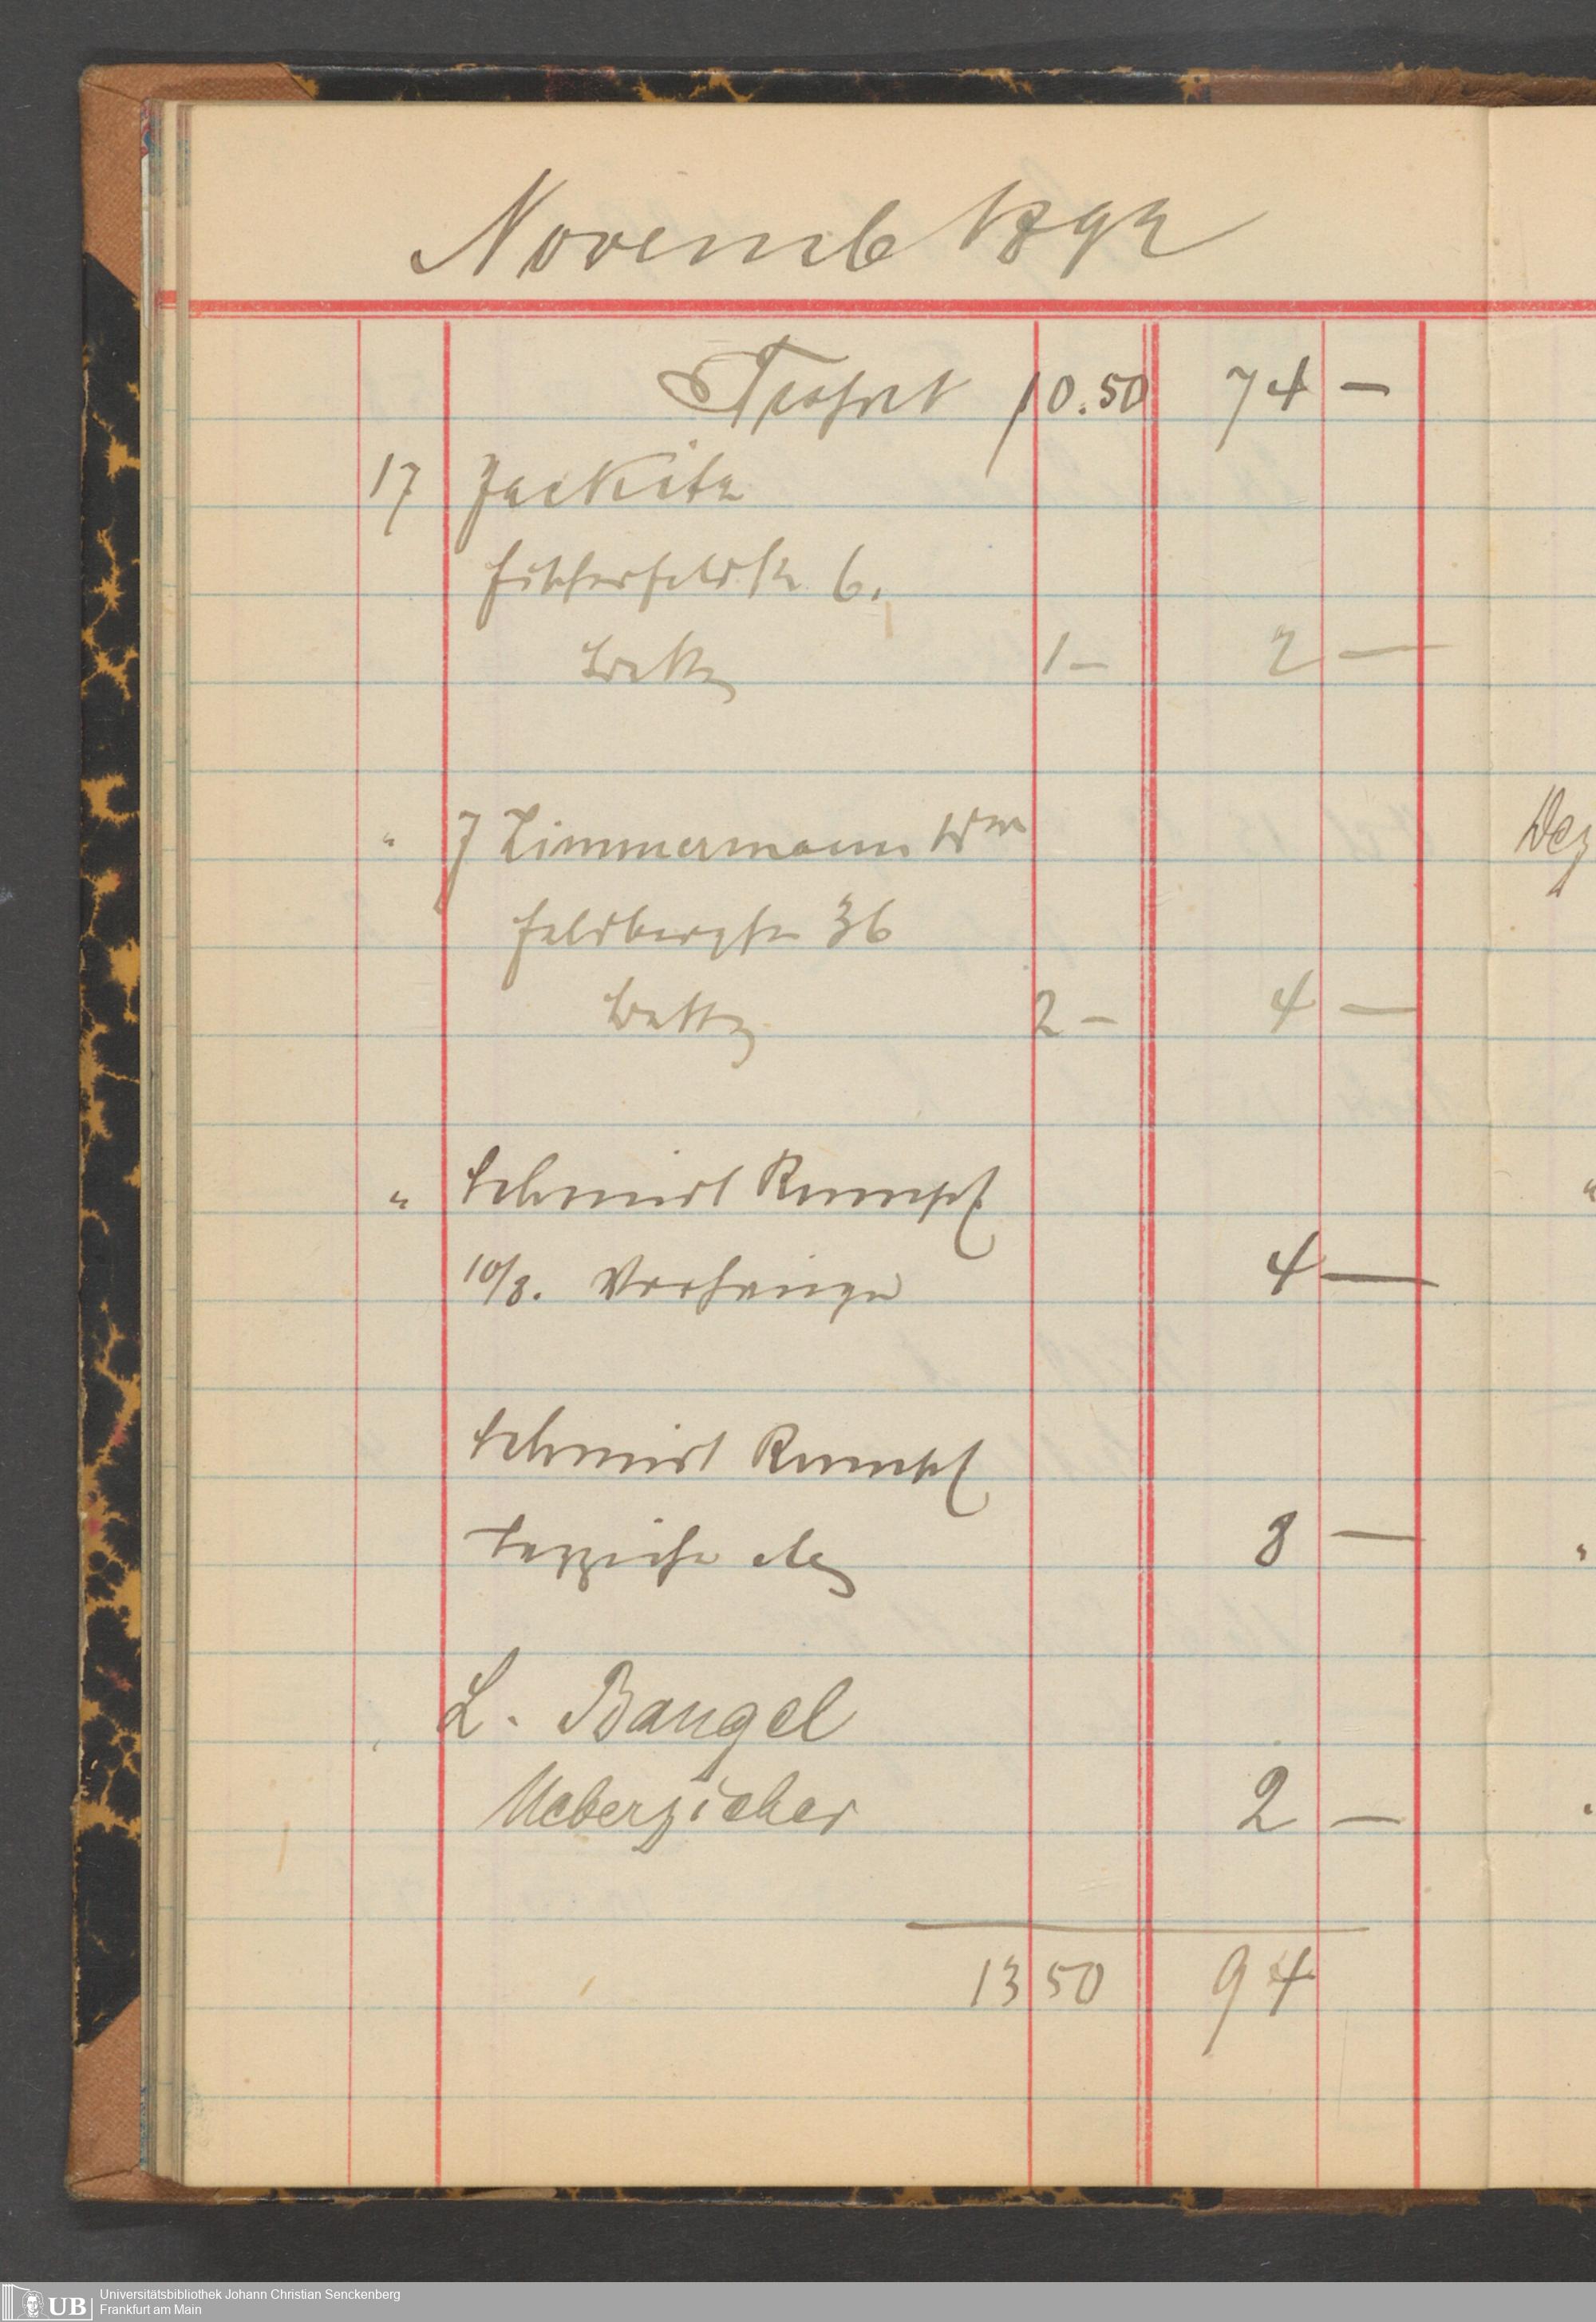 Novemb 1892
Trspt 10.50 74 —
17 Jackita
Fischerfeldstr. 6.
Bettz 1 – 2 —
" J Zimmermann Ww
Feldbergstr 36
Bettz 2 – 4 —
" Schmidt Rumpf
10/8. Vorhänge 4 —
Schmidt Rumpf
Teppiche 8 —
L. Bangel
Ueberzieher 2 —
13 50 94
Dez
Universitätsbibliothek Johann Christian Senckenberg
Frankfurt am Main
UB